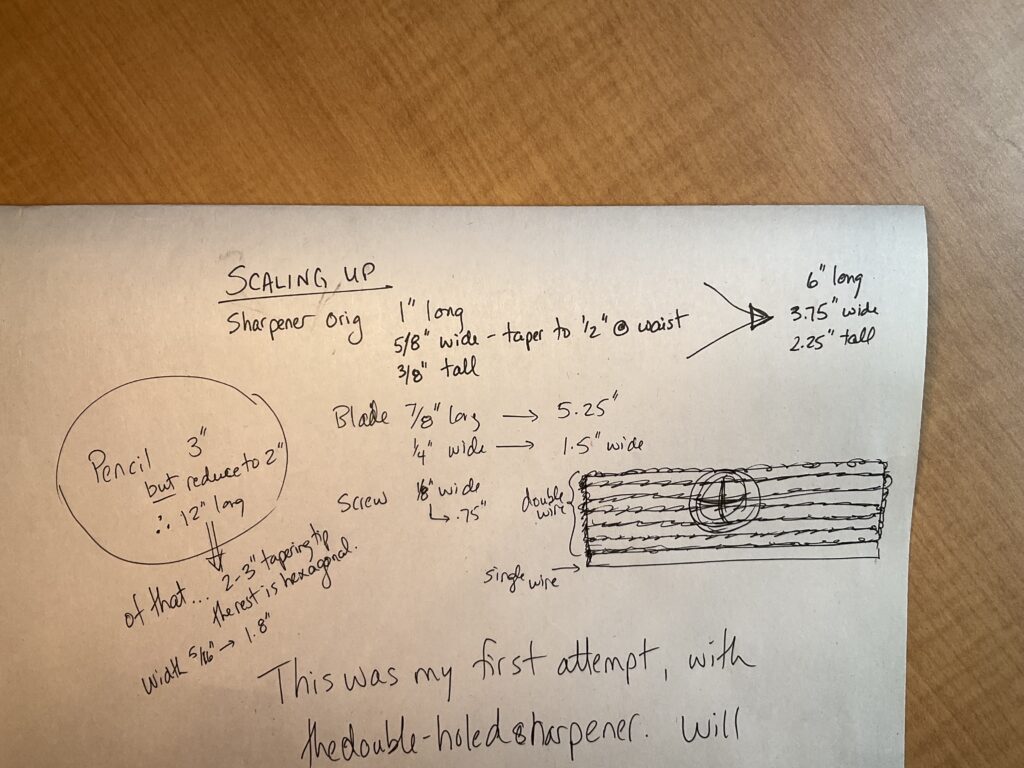 SCALING UP
Sharpener Orig 1" long
5/8" wide - taper to 1/2" @ waist
3/8" tall
6" long
3.75" wide
2.25" tall
Blade 7/8" long → 5.25"
1/4" wide → 1.5" wide
Screw 1/8" wide
↳ .75"
Pencil 3"
but reduce to 2"
∴ 12" long
of that... 2-3" tapering tip
the rest is hexagonal.
width 5/16" → 1.8"
double wire
single wire →
This was my first attempt, with
the double-holed sharpener. Will